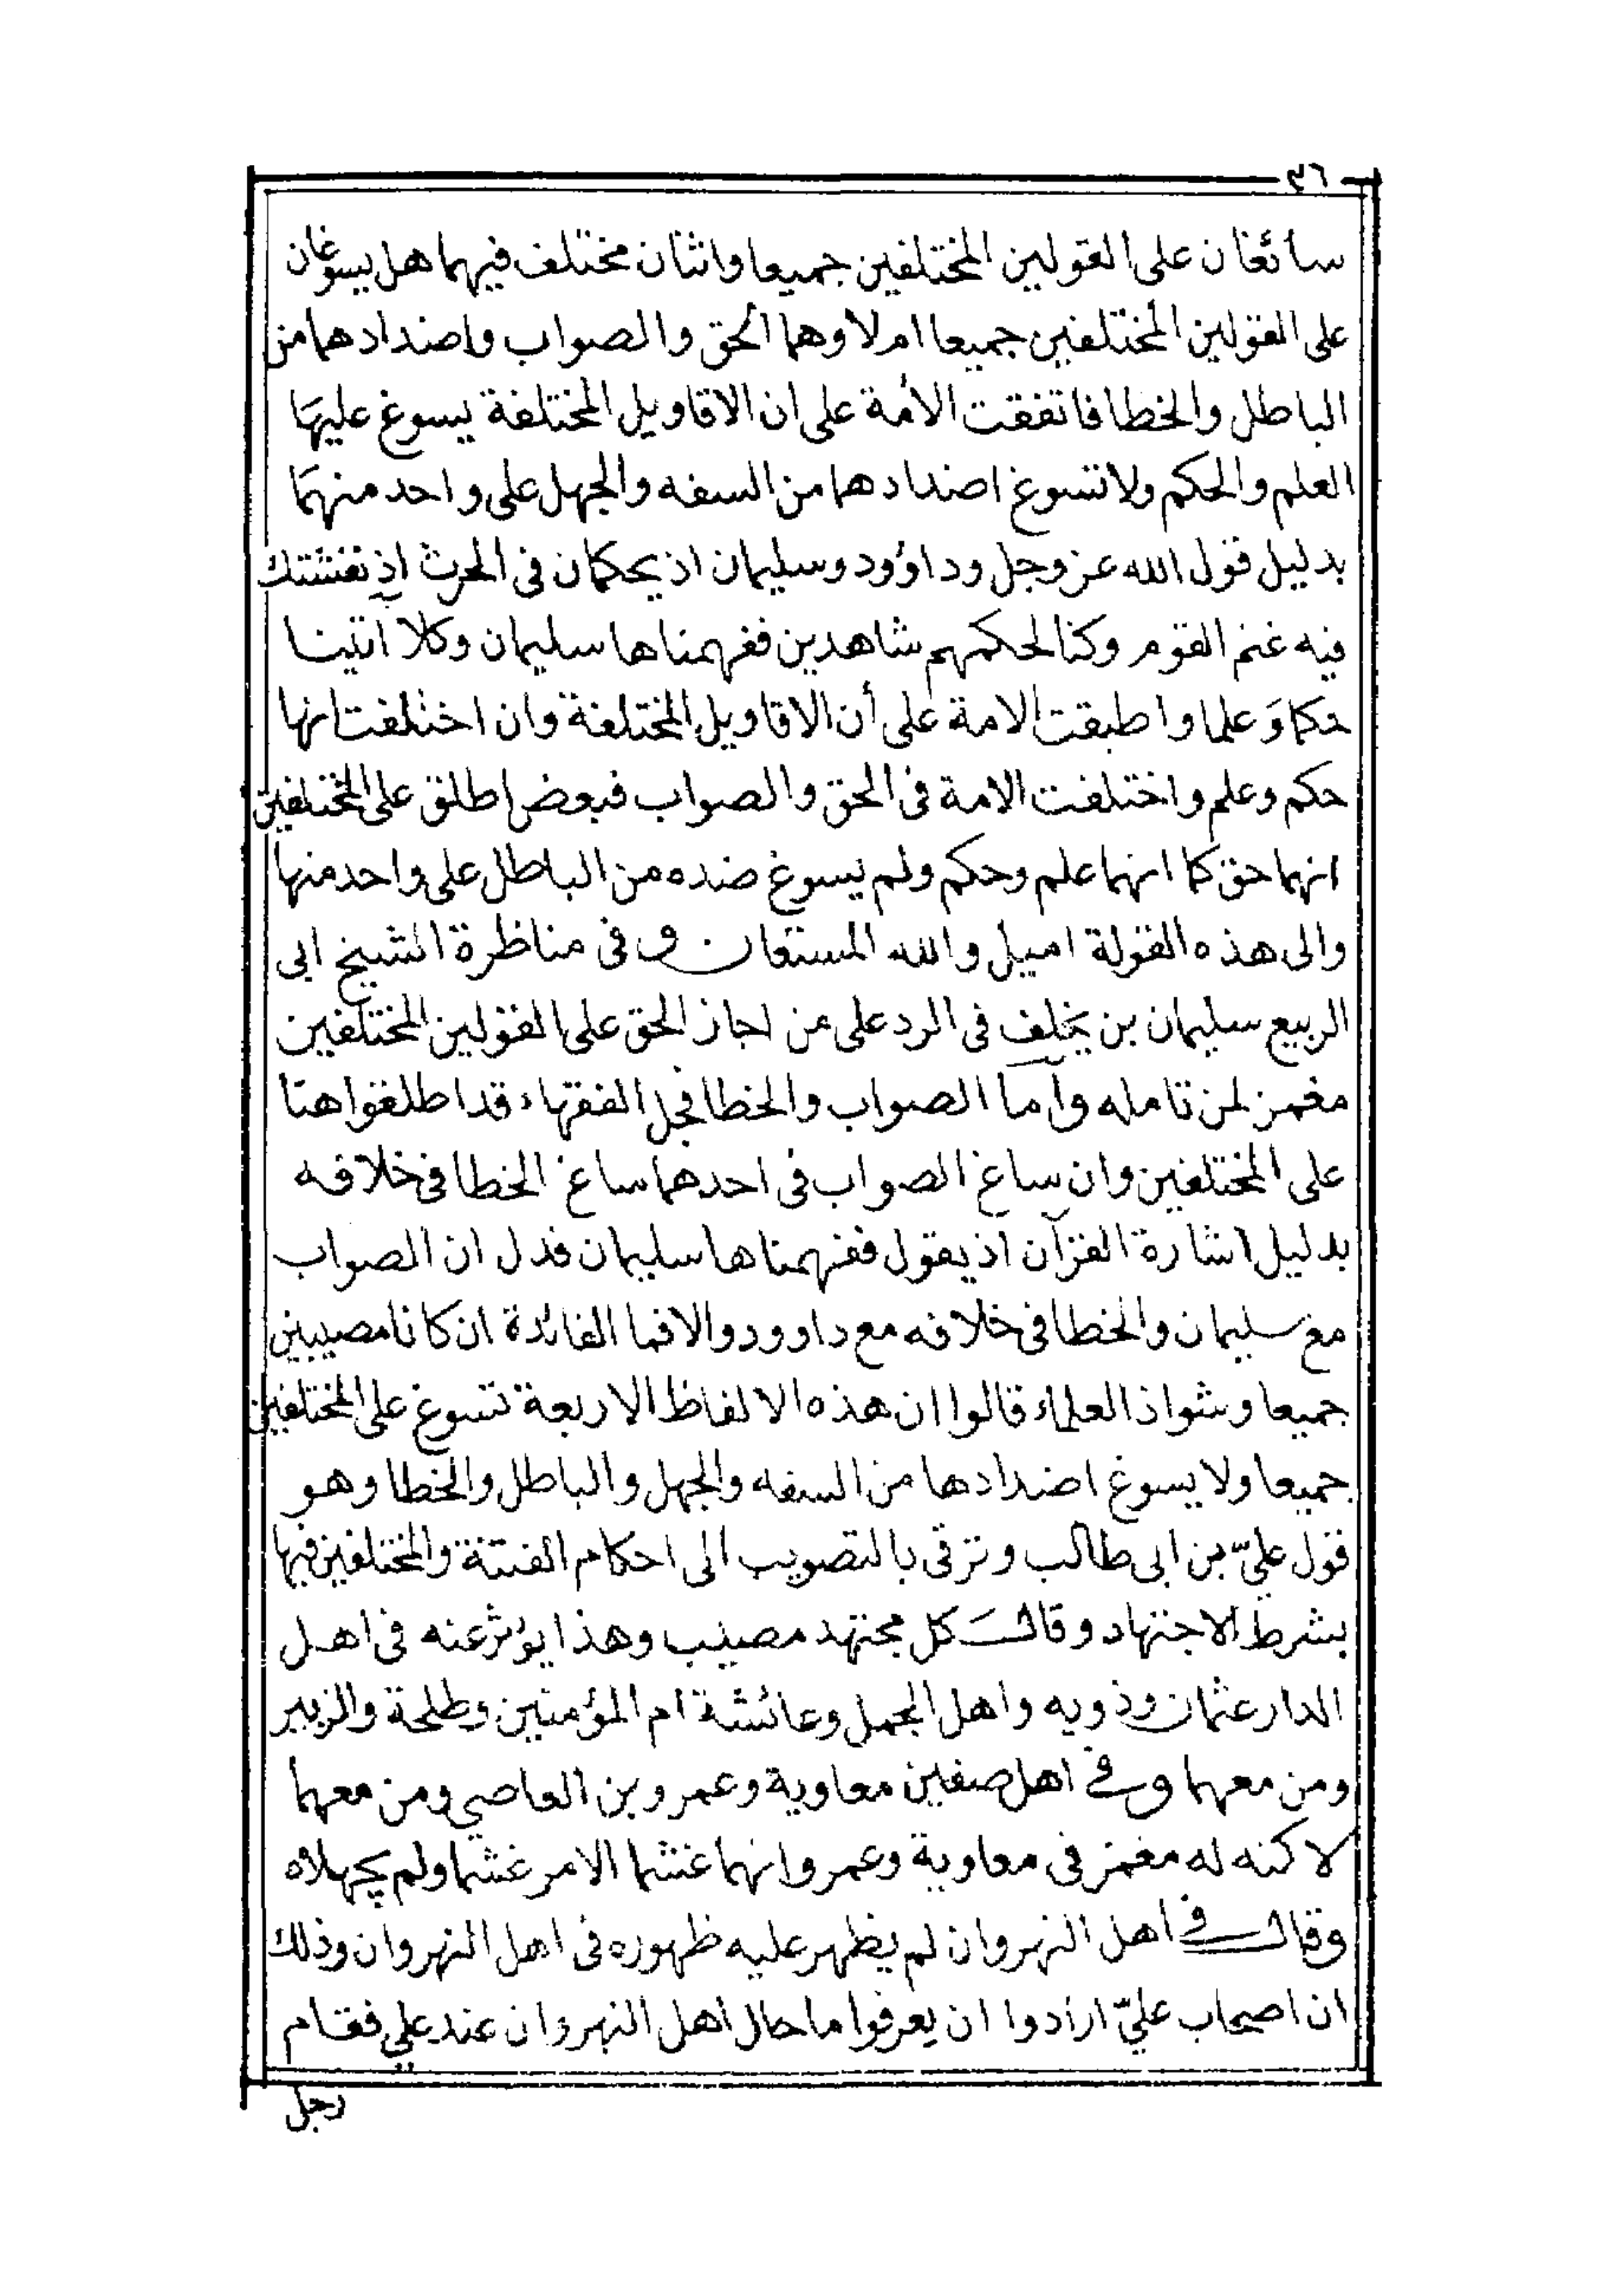 ٣٦
سائغان على القولين المختلفين جميعا واثنان مختلف فيهما هل يسوغان
على القولين المختلفين جميعا ام لا وهما الحق والصواب واضدادهما من
الباطل والخطا فاتفقت الأمة على ان الاقاويل المختلفة يسوغ عليها
العلم والحكم ولا تسوغ اضدادهما من السفه والجهل على واحد منهما
بدليل قول الله عز وجل وداوود وسليمان اذ يحكمان في الحرث اذ نفشت
فيه غنم القوم وكنا لحكمهم شاهدين ففهمناها سليمان وكلا آتينا
حكما وَعلما واطبقت الامة على أن الاقاويل المختلفة وان اختلفت انها
حكم وعلم واختلفت الامة في الحق والصواب فبعض اطلق على المختلفين
انهما حق كما انهما علم وحكم ولم يسوغ ضده من الباطل على واحد منها
والى هذه القولة اميل والله المستعان وفي مناظرة الشيخ ابى
الربيع سليمان بن يخلف في الرد على من اجاز الحق على القولين المختلفين
مغمز لمن تامله وأما الصواب والخطا فجل الفقهاء قد اطلقوا هنا
على المختلفين وان ساغ الصواب في احدهما ساغ الخطا في خلافه
بدليل اشارة القرآن اذ يقول ففهمناها سليمان فدل ان الصواب
مع سليمان والخطا في خلافه مع داوود والا فما الفائدة ان كانا مصيبين
جميعا وشواذ العلماء قالوا ان هذه الالفاظ الاربعة تسوغ على المختلفين
جميعا ولا يسوغ اضدادها من السفه والجهل والباطل والخطا وهو
قول عليّ بن ابى طالب وترقى بالتصويب الى احكام الفتنة والمختلفين فيها
بشرط الاجتهاد وقال كل مجتهد مصيب وهذا يؤثر عنه في اهل
الدار عثمان وذويه واهل الجمل وعائشة ام المؤمنين وطلحة والزبير
ومن معهما وفي اهل صفين معاوية وعمرو بن العاصي ومن معهما
لاكنه له مغمز في معاوية وعمرو انهما غشما الامر غشما ولم يجهلاه
وقال في اهل النهروان لم يظهر عليه ظهوره في اهل النهروان وذلك
ان اصحاب عليّ ارادوا ان يعرفوا ما حال اهل النهروان عند علي فقام
رجل